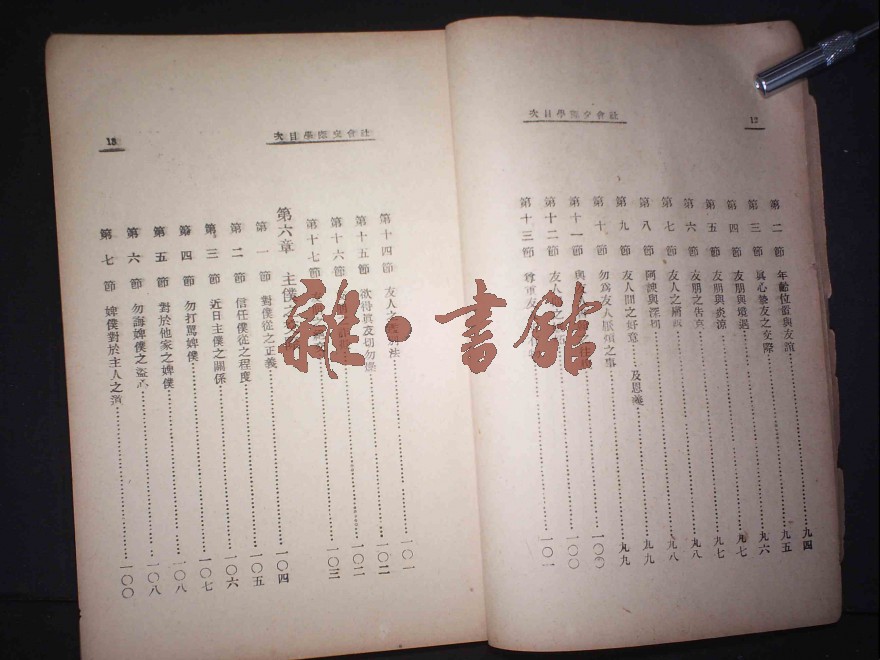 12
社會交際學目次
第二節 年齡位置與友誼……九四
第三節 眞心摯友之交際……九五
第四節 友朋與境遇……九六
第五節 友朋與炎涼……九七
第六節 友朋之告[]……九八
第七節 友人之[]……九八
第八節 阿諛與深切……九九
第九節 友人間之好意 及恩義……九九
第十節 勿爲友人厭煩之事……一〇〇
第十一節 與友……一〇〇
第十二節 友人之
第十三節 尊重友……一〇一
社會交際學目次
13
第十四節 友人之 法……一〇一
第十五節 欲得眞友切勿……一〇二
第十六節……一〇二
第十七節……一〇三
第六章 主僕之……一〇四
第一節 對僕從之正義……一〇四
第二節 信任僕從之程度……一〇五
第三節 近日主僕之關係……一〇六
第四節 勿打罵婢僕……一〇七
第五節 對於他家之婢僕……一〇八
第六節 勿誨婢僕之盜心……一〇八
第七節 婢僕對於主人之……一〇〇
雜·書館